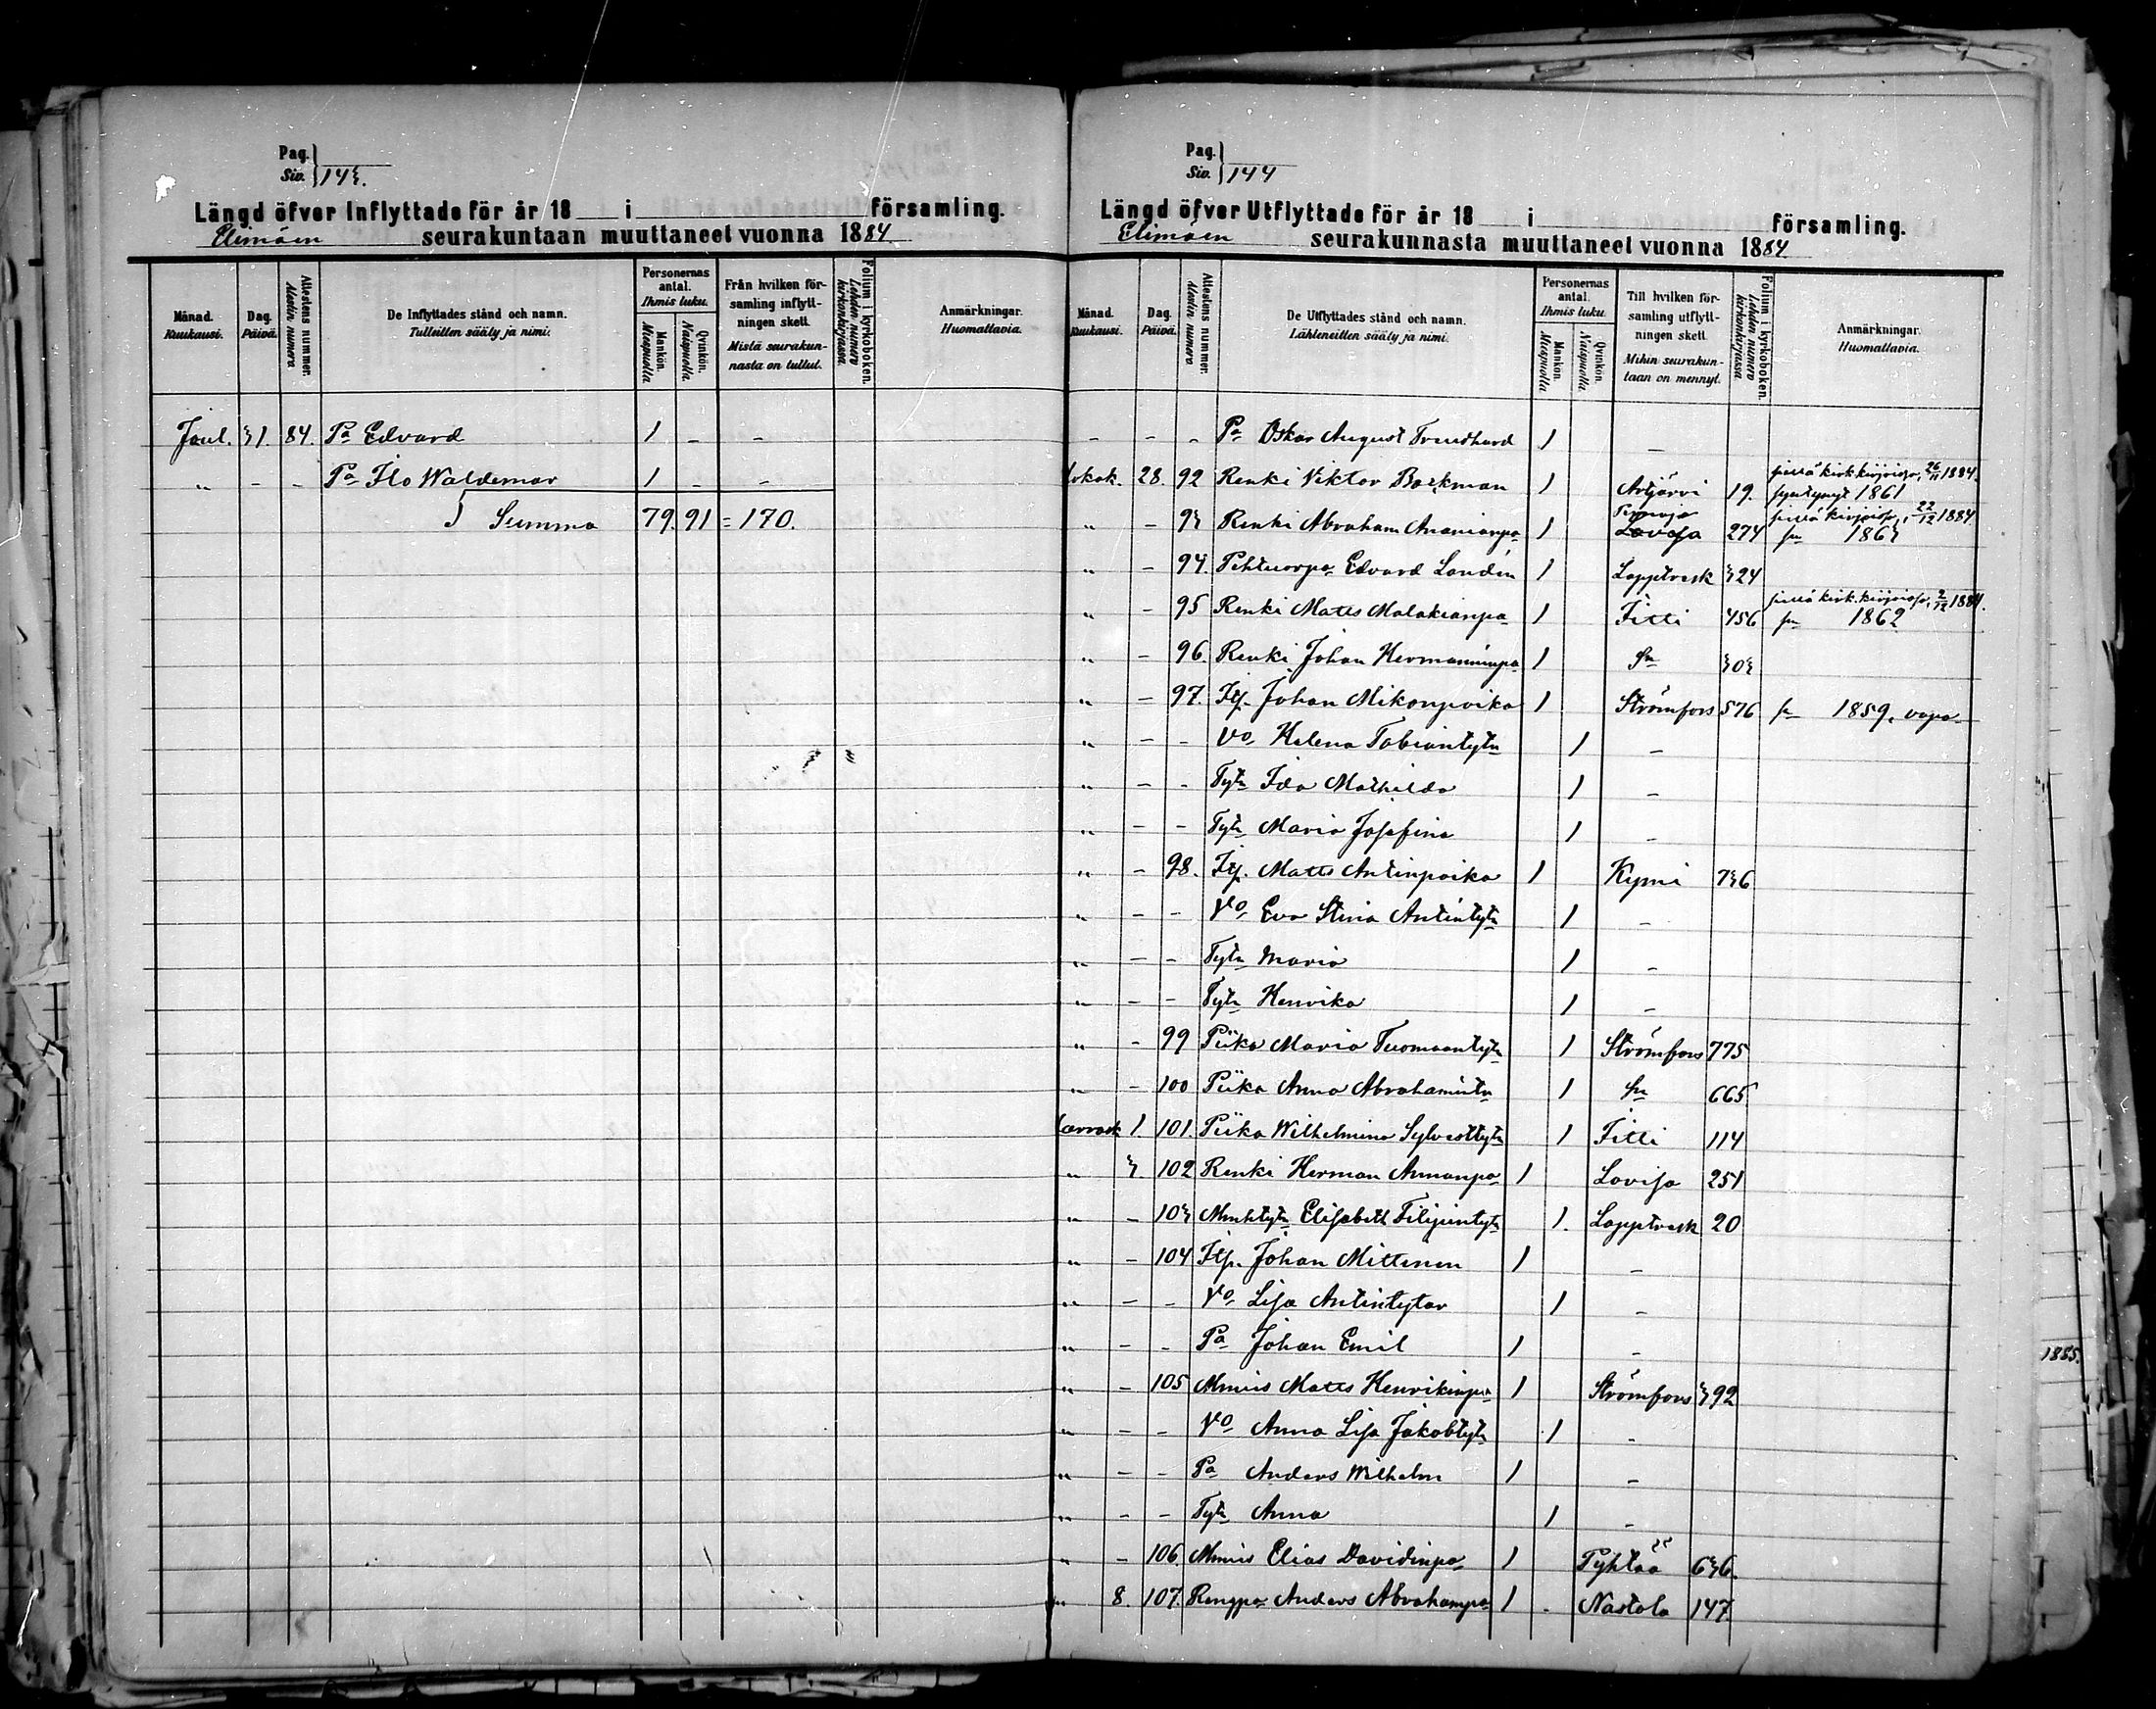 Pag.
Siv. 143.
Längd öfver Inflyttade för år 18 i församling.
Elimäen seurakuntaan muuttaneet vuonna 1884
Månad. Kuukausi. Dag. Päivä. Attestens nummer. Atestin numero De Inflyttades stånd och namn. Tulleitten sääty ja nimi. Personernas antal. Ihmis luku. Mankön. Miespuolia Qvinkön. Naispuolia. Från hvilken församling inflyttningen skett. Mistä seurakunnasta on tullut. Folium i kyrkoboken. Lehden numero kirkonkirjassa. Anmärkningar. Huomattavia.
Joul. 31. 84. Pa Edvard 1 - -
" - - Pa Ilo Waldemar 1 - -
Summa 79. 91 = 170.
Pag.
Siv. 144
Längd öfver Utflyttade för år 18 i församling.
Elimäen seurakunnasta muuttaneet vuonna 1884
Månad. Kuukausi. Dag. Päivä. Attestens nummer. Atestin numero De Utflyttades stånd och namn. Lähteneitten sääty ja nimi. Personernas antal. Ihmis luku. Mankön. Miespuolia Qvinkön. Naispuolia. Till hvilken församling utflyttningen skett. Mihin seurakuntaan on mennyt. Folium i kyrkoboken. Lehden numero kirkonkirjassa. Anmärkningar. Huomattavia.
- - - Pa Oskar August 1 -
Lokak. 28. 92 Renki Viktor Backman 1 Artjärvi 19. 26/11 1884. syntynyt 1861
" - 93 Renki Abraham Ananianpa 1 Pernaja Lovisa 274 22/12 1884 1863
" - 94. Edvard Landén 1 Lapptresk 324
" - 95 Renki Matts Malakianpa 1 Iitti 456 2/12 1884. 1862
" - 96. Renki Johan Hermanninpa 1 sn 303
" - 97. Itp. Johan Mikonpoika 1 Strömfors 576 1859, vapa
" - - Vo Helena Tobiantytr 1 -
" - - Tytr Ida Mathilda 1 -
" - - Tytr Maria Josefina 1 -
" - 98. Itp. Matts Antinpoika 1 Kymi 736
" - - Vo Eva Stina Antintytr 1 -
" - - Tytr Maria 1 -
" - - Tytr Henrika 1 -
" - 99 Piika Maria Tuomaantytr 1 Strömfors 775
" - 100 Piika Anna Abrahamintr 1 sn 665
Marrask 1. 101. Piika Wilhelmina Sylvesttytr 1 Iitti 114
" 3. 102 Renki Herman Annanpa 1 Lovisa 251
" - 103 Elisabeth Filipintytr 1. Lapptresk 20
" - 104 Itp. Johan Mittinen 1 -
" - - Vo Lisa Antintytar 1 -
" - - Pa Johan Emil 1 -
" - 105 Mmies Matts Henrikinpa 1 Strömfors 392
" - - Vo Anna Lisa Jakobtytr 1 -
" - - Pa Anders Wilhelm 1 -
" - - Tytr Anna 1 -
" - 106. Mmies Elias Davidinpa 1 Pyhtää 636.
" 8. 107. Rengpa Anders Abrahampa 1 - Nastola 147
1885.